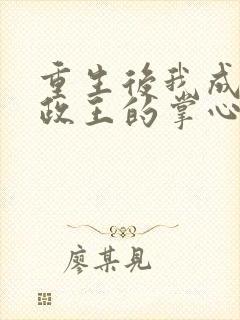 重生後我成
政王的掌心
廖某見